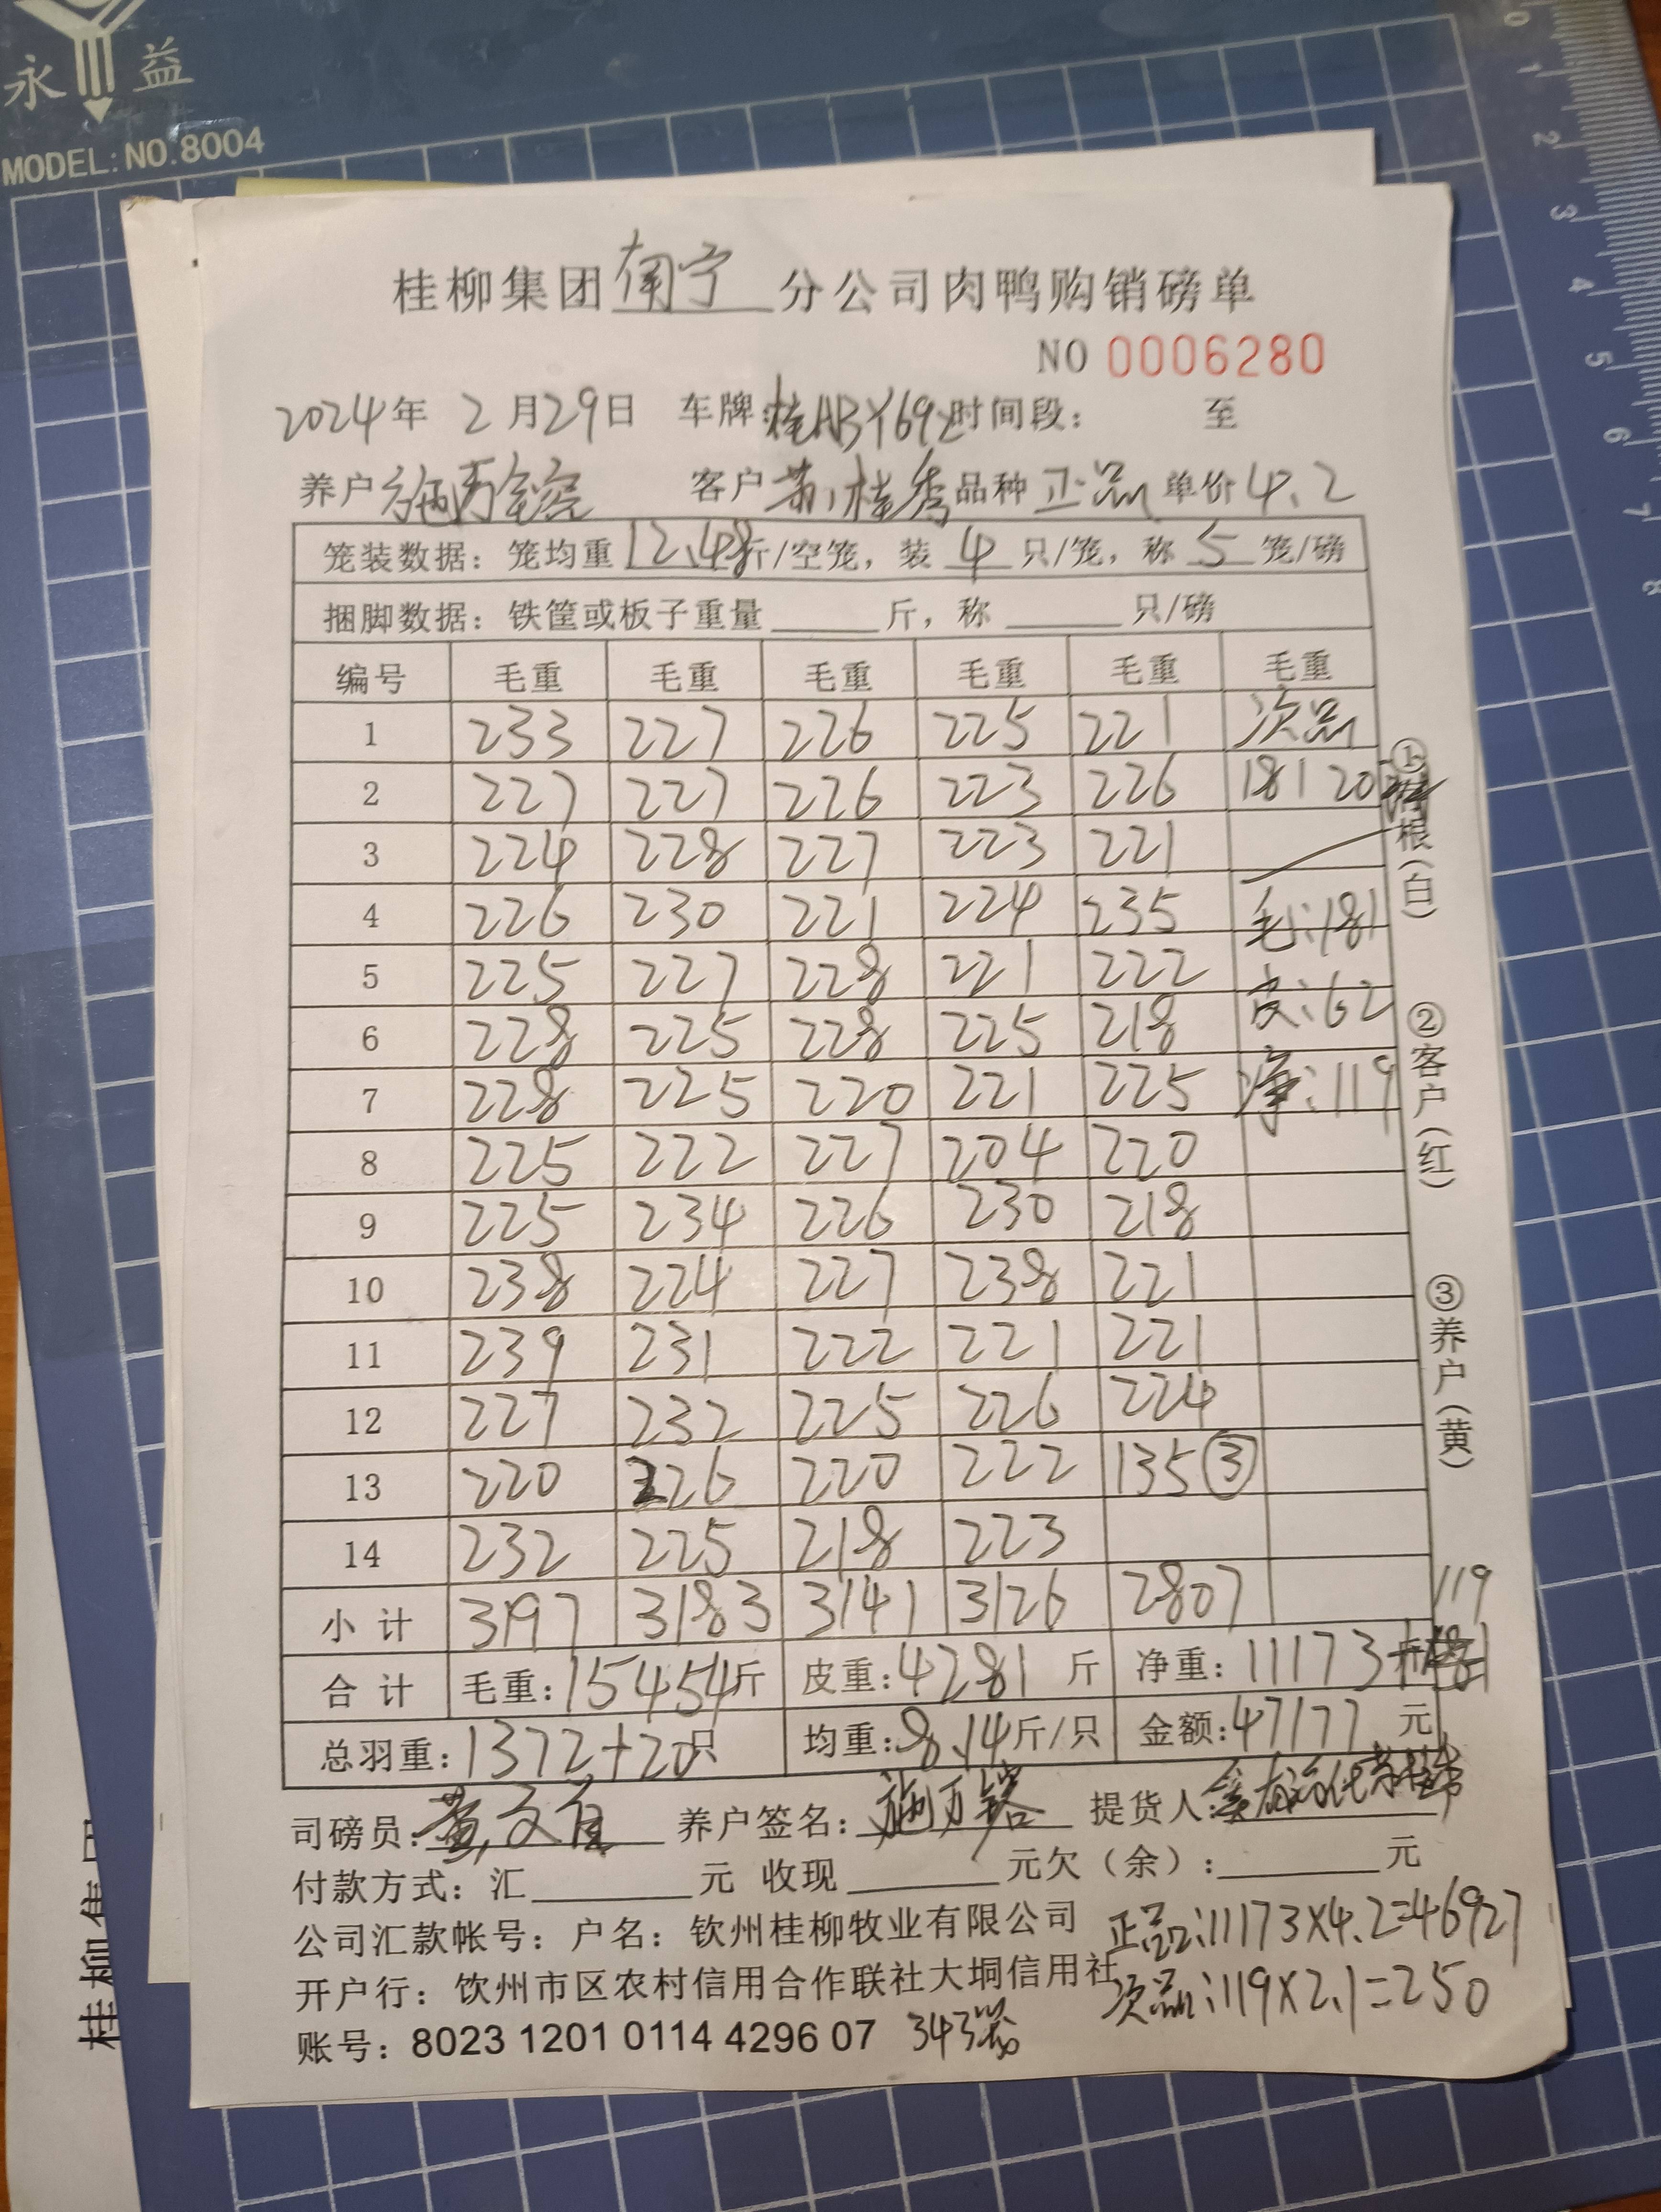 永 益
MODEL: NO.8004
桂柳集团南宁分公司肉鸭购销磅单
NO 0006280
2024年 2月29日 车牌:桂AB Y692 时间段: 至
养户 施万 客户 桂秀 品种 正品 单价 4.2
笼装数据: 笼均重 12.48 斤/空笼, 装 4 只/笼, 称 5 笼/磅
捆脚数据: 铁筐或板子重量 斤, 称 只/磅
编号 毛重 毛重 毛重 毛重 毛重 毛重
1 233 227 226 225 221 次品
2 227 227 226 223 226 181 20
3 224 228 227 223 221
4 226 230 221 224 235 毛:181
5 225 227 228 221 222 皮:62
6 228 225 228 225 218
7 228 225 220 221 225 净:119
8 225 222 227 204 220
9 225 234 226 230 218
10 238 224 227 238 221
11 239 231 222 221 221
12 227 232 225 226 224
13 220 226 220 222 135 ③
14 232 225 218 223
小计 3197 3183 3141 3126 2807
119
合计 毛重:15454斤 皮重:4281 斤 净重:11173
总羽重:1372+20只 均重:8.14斤/只 金额:47177 元
司磅员: 黄 养户签名: 施万 提货人:
付款方式: 汇 元 收现 元欠(余): 元
公司汇款帐号: 户名: 钦州桂柳牧业有限公司
正品:11173X4.2=46927
开户行: 饮州市区农村信用合作联社大垌信用社
次品:119X2.1=250
账号: 8023 1201 0114 4296 07 343
①
根(白)
②客户(红)
③养户(黄)
0
1
2
3
4
5
6
7
8